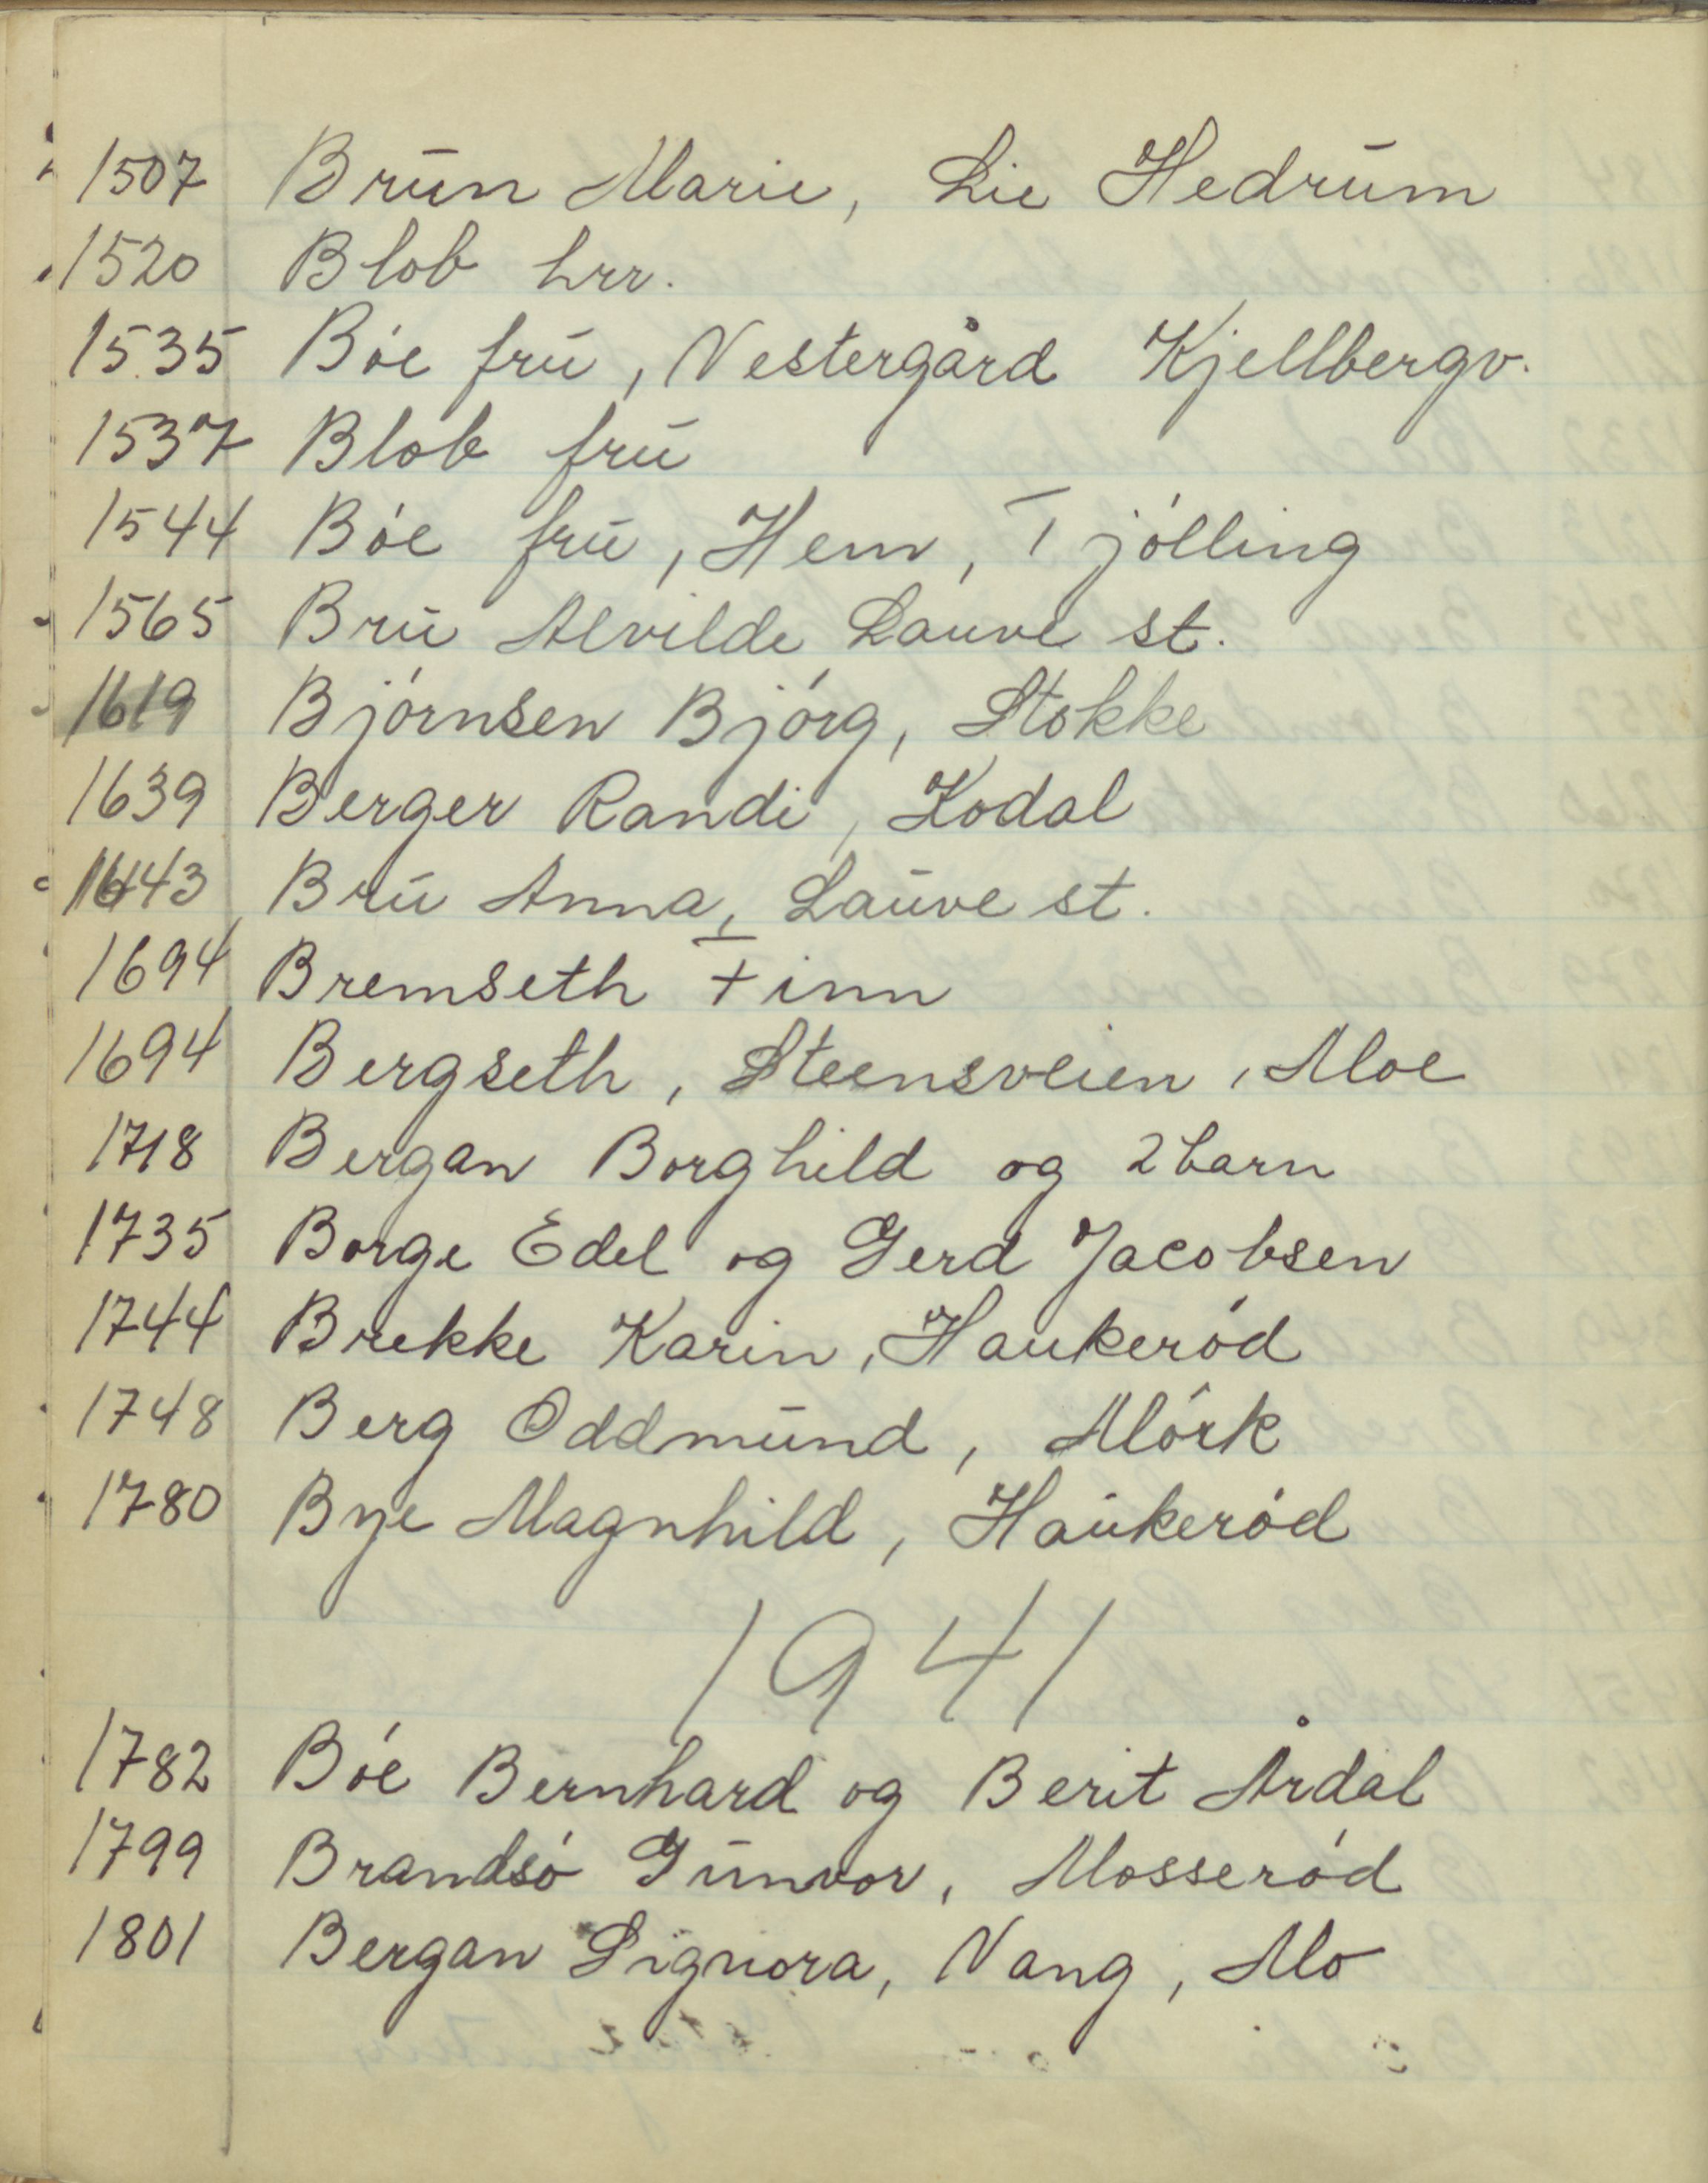 1507 Brun Marie, Lie Hedrum
1520 Blob hrr.
1535 Bóe fru, Vestergård Kjellbergv.
1537 Blob fru
1544 Bóe fru, Hem, Tjólling
1565 Bru Alvilde Lauve st.
1619 Bjórnsen Bjórg, Stokke
1639 Berger Randi, Kodal
1643 Bru Anna, Lauve st.
1694 Bremseth Finn
1694 Bergseth, Steensveien, Moe
1718 Bergan Borghild og 2 barn
1735 Borge Edel og Gerd Jacobsen
1744 Brekke Karin, Haukeród
1748 Berg Oddmund, Mórk
1780 Bye Magnhild, Haukeród
1941
1782 Bóe Bernhard og Berit Årdal
1799 Brandsó Gunvor, Mosseród
1801 Bergan Signora, Vang, Mo